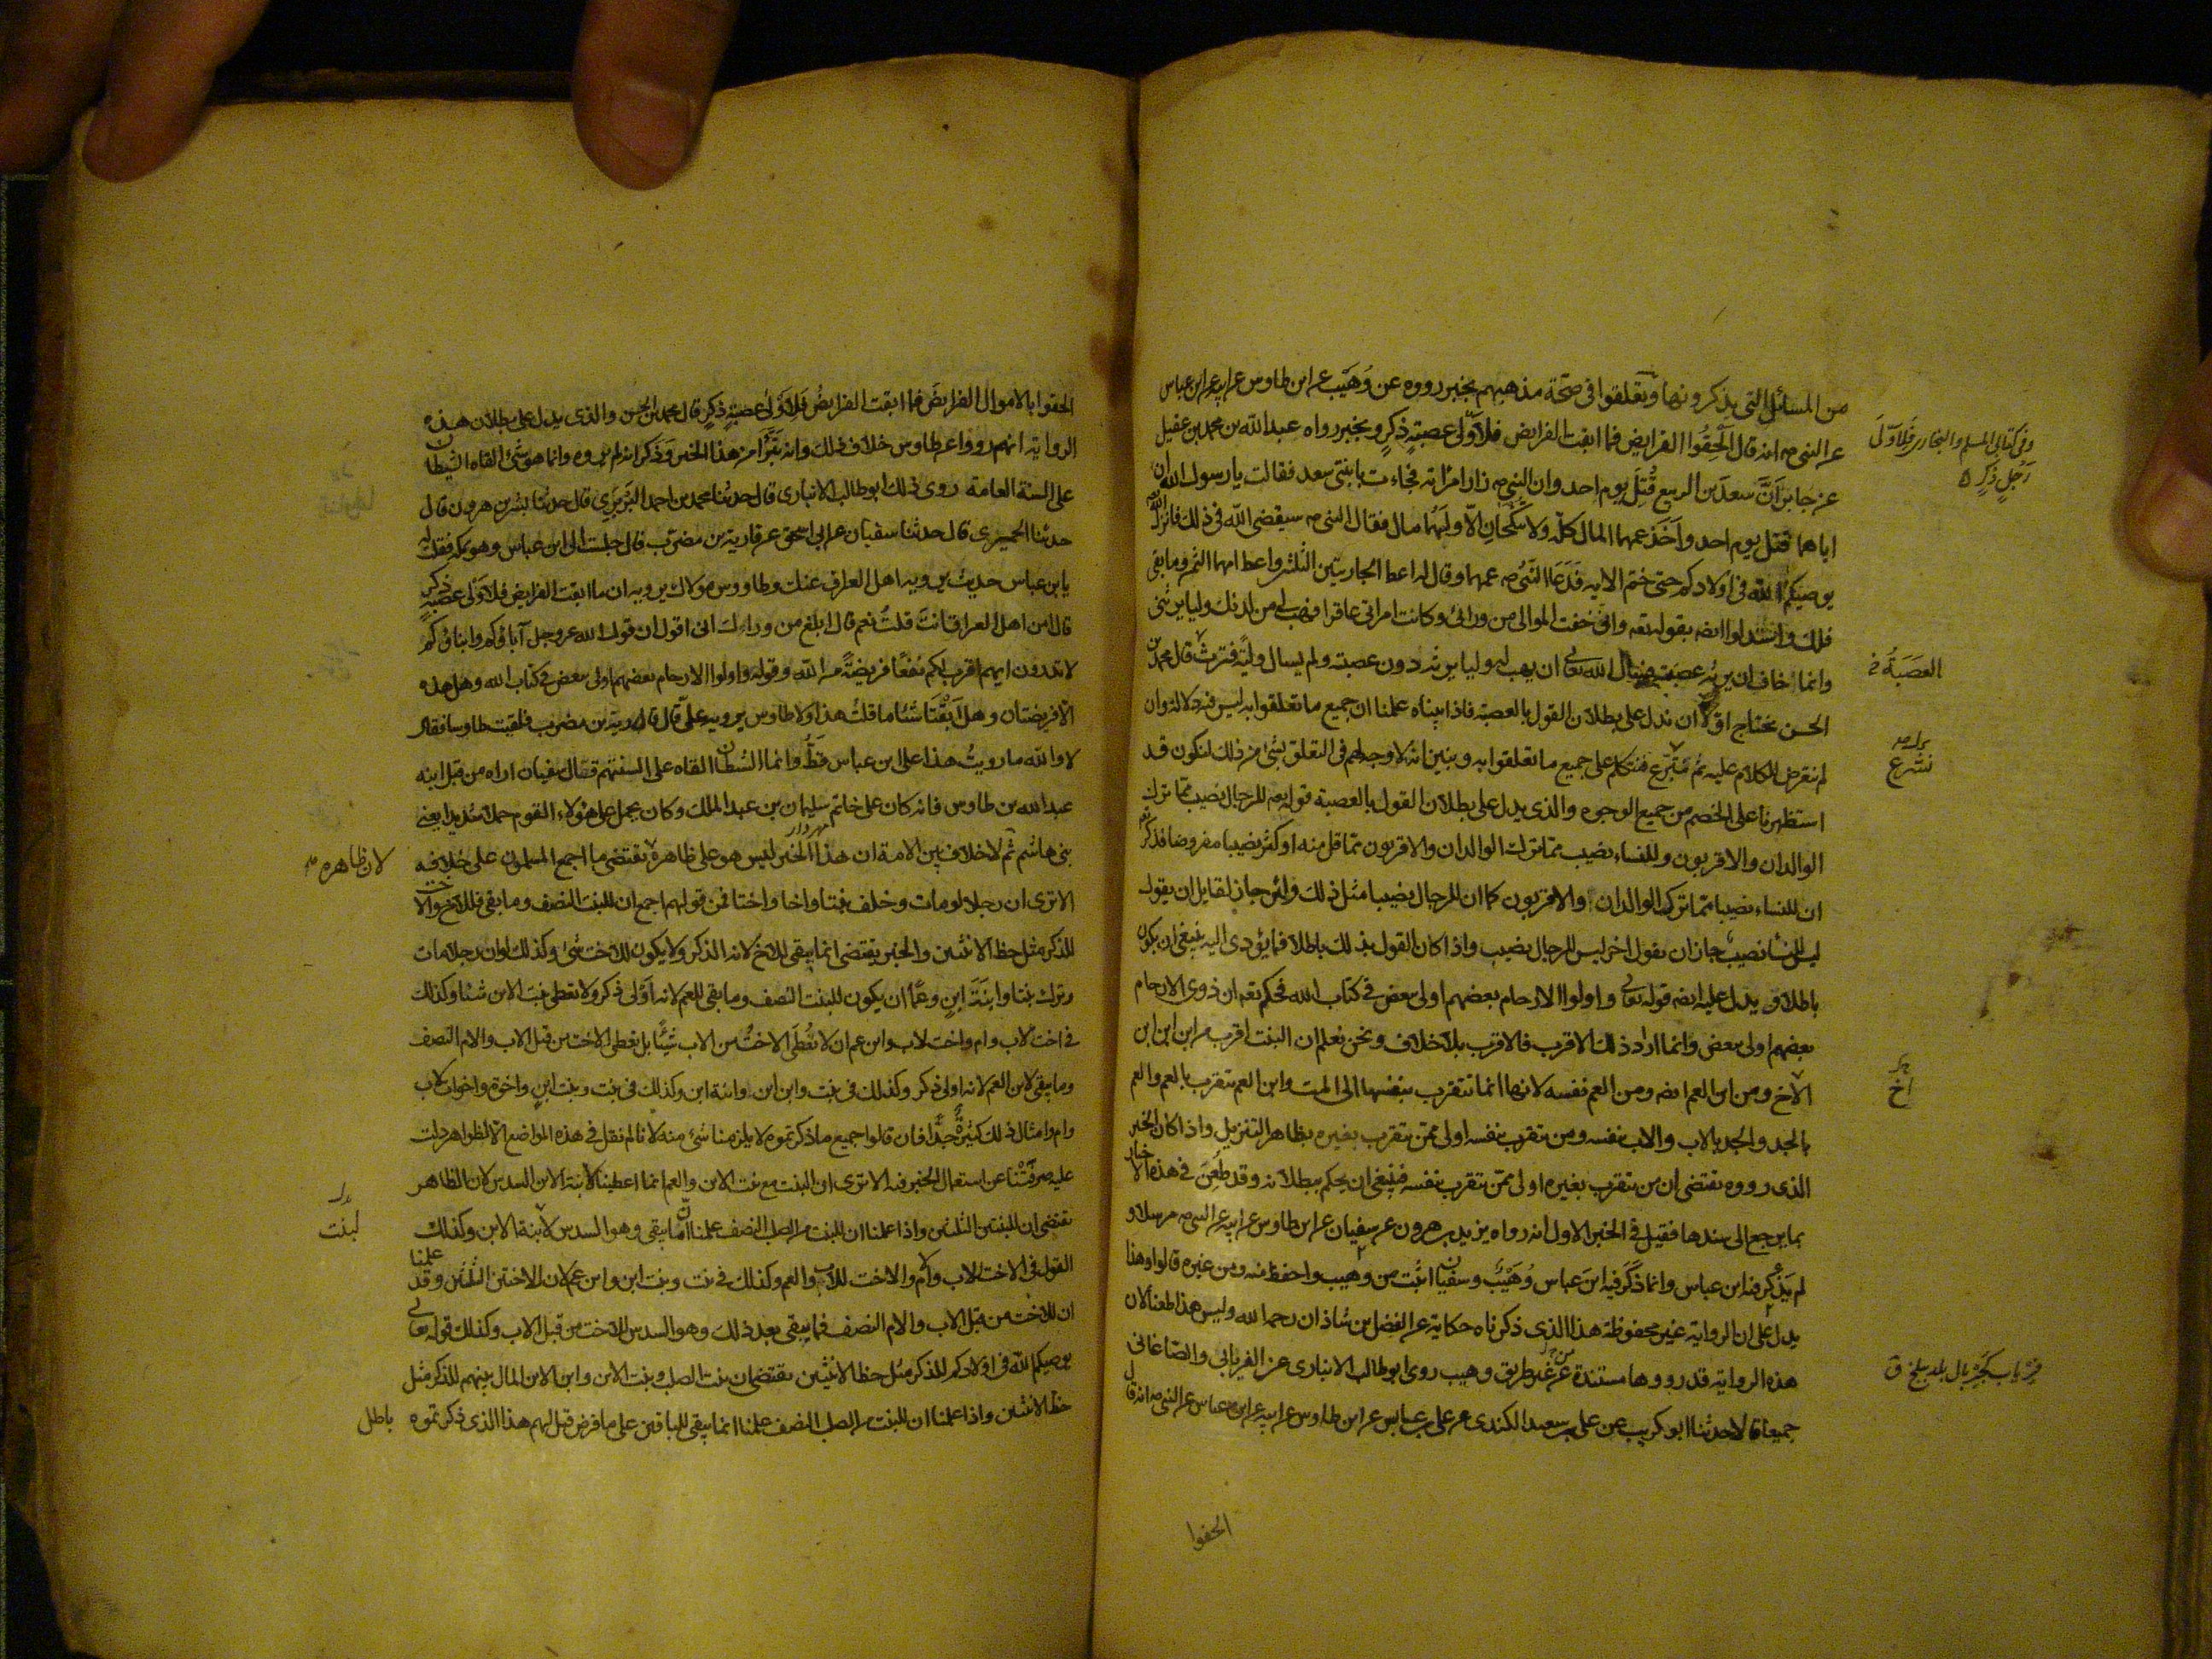 من المسائل التي يذكرونها وتعلقوا في صحّة مذهبهم بخبر رووه عن وُهَيب عن ابن طاوس عن ابيه عن ابن عباس
عن النبي ص انه قال اَلحِقُوا الفرايض فما ابقت الفرايض فلاَوْلى عصبةٍ ذكرٍ وبخبر رواه عبدالله بن محمد بن عقيل
عن جابر اَنَّ سعدَ بن الربيع قُتِلَ يوم احد وان النبي ص زار امرأته فجاءت بابنتي سعد فقالت يا رسول الله ان
اباهما قتل يوم احد واَخَذَ عمهما المال كلّه ولا تنكحان الّا ولهُما مال فقال النبي ص سيقضى الله في ذلك فانزل الله
يوصيكم الله في اولادكم حتى ختم الايه فَدَعَا النَّبيُ ص عمهما وقال له اعط الجاريتين الثلثين واعط امهما الثمن وما بقى
فلك واستدلوا ايضه بقوله تعه وانّي خفت الموالى من ورائى وكانت امراتي عاقرا فهب لى من لدنك وليا يرثنى
وانما خاف ان يرثه عصبته فسال الله تعالى ان يهب له وليا يرثه دون عصبته ولم يسال وليّةً فترث قال محمد بن
الحسن نحتاج اوّلا ان ندل على بطلان القول بالعصبة فاذا بيناه علمنا ان جميع ما تعلقوا به ليس فيه دلالة وان
لم نتعرض للكلام عليه ثم نتبرّع فنتكلم على جميع ما تعلقوا به ونبين انه لا وجه لهم في التعلق بشئ من ذلك لنكون قد
استظهرنا على الخصم من جميع الوجوه والذي يدل على بطلان القول بالعصبة قوله تعه للرجال نصيب ممّا ترك
الوالدان والاقربون وللنساء نصيب ممّا ترك الوالدان والاقربون ممّا قل منه او كثر نصيبا مفروضا فذكر تعه
ان للنساء نصيبا ممّا ترك الوالدان والاقربون كما ان للرجال نصيبا مثل ذلك ولئن جاز لقايل ان يقول
ليس للنساء نصيب جاز ان يقول اخر ليس للرجال نصيب واذا كان القول بذلك باطلا فما يؤدى اليه ينبغي ان يكون
باطلا ويدل عليه ايضه قوله تعالى واولوا الارحام بعضهم اولى ببعض في كتاب الله فحكم تعه ان ذوى الارحام
بعضهم اولى ببعض وانما اراد ذلك الاقرب فالاقرب بلا خلاف ونحن نعلم ان البنت اقرب من ابن ابن ابن
الاخ ومن ابن العم ايضه ومن العم نفسه لانها انما تتقرب بنفسها الى الميت وابن العم يتقرب بالعم والعم
بالجد والجد بالاب والاب بنفسه ومن يتقرب بنفسه اولى ممّن يتقرب بغيره بظاهر التنزيل واذا كان الخبر
الذى رووه يقتضى ان من يتقرب بغيره اولى ممّن يتقرب بنفسه فينبغى ان يحكم ببطلانه وقد طُعِنَ في هذه الاخبار
بما يرجع الى سندها فقيل في الخبر الاول انه رواه يزيد بن هرون عن سفيان عن ابن طاوس عن ابيه عن النبي ص مرسلا و
لم يَذكر فيه ابن عباس وانما ذَكَر فيه ابنَ عباس وُهَيْبٌ وسفيان اثبت من وهيب واحفظ منه ومن غيره قالوا وهذا
يدل على ان الرواية غير محفوظة هذا الذى ذكرناه حكاية عن الفضل بن شاذان رحمه الله وليس هذا طعنا لان
هذه الرواية قد رووها مستندة من غير طريق وهيب روى ابو طالب الانباري عن الفريابى والصّاغاني
جميعا قالا حدثنا ابو كريب عن على بن سعيد الكندى عن على بن عباس عن ابن طاوس عن ابيه عن ابن عباس عن النبي ص انه قال
الحقوا
وفي كتابي المسلم والبخاري فَلِاَوْلى
رَجُلٍ ذكرٍ
العَصَبَةُ خ
نشرع
اخ
الحقوا بالاموال الفرايضَ فما ابقت الفرايضُ فَلِاَوْلى عصبةٍ ذكرٍ قال محمد بن الحسن والذي يدل على بطلان هذه
الرواية انهم رووا عن طاوس خلاف ذلك وانه تبَرَّأ من هذا الخبر وَذكر انه لم يروه وانما هو شئ القاه الشيطان
على السنة العامة روى ذلك ابو طالب الانباري قال حدثنا محمد بن احمد البَرْبَرى قال حدثنا بشر بن هرون قال
حدثنا الحميرى قال حدثنا سفيان عن ابى اسحق عن قاربة بن مضرّب قال جلست الى ابن عباس وهو بمكة فقلت له
يا بن عباس حديث يرويه اهل العراق عنك وطاووس مولاك يرويه ان ما ابقت الفرايض فلاَوْلى عصبةٍ ذكرٍ
قال امن اهل العراق انتَ قلتُ نعم قال ابلغ من وراءك انى اقول ان قول الله عز وجل آباؤكم وابناؤكم
لا تدرون ايهم اقرب لكم نفعًا فريضةً من الله وقوله واولوا الارحام بعضهم اولى ببعض في كتاب الله وهل هذه
الّا فريضتان وهل ابقتا شيئا ما قلتُ هذا ولا طاوس يرويه علىّ قال قاربة بن مضرب فلقيت طاوسا فقال
لا والله ما رويتُ هذا على ابن عباس قطُّ وانما الشيطان القاه على السنتهم فقال سفيان اراه من قبل ابنه
عبدالله بن طاوس فانه كان على خاتم سليمان بن عبد الملك وكان يحمل على هؤلاء القوم حملا شديدا يعنى
بنى هاشم ثم لا خلاف بين الامة ان هذا الخبر ليس هو على ظاهره يقتضى ما اجمع المسلمون على خلافه
الا ترى ان رجلا لو مات وخلف بنتا واخا واختا فمن قولهم اجمع ان للبنت النصف وما بقى فللاخ والاخت
للذكر مثل حظ الانثيين والخبر يقتضى انما يبقى للاخ لانه الذكر ولا يكون للاخت شئ وكذلك لو ان رجلا مات
وترك بنتا وابنَةَ ابنٍ وعمًّا ان يكون للبنت النصف وما بقى للعم لانه اَوْلى ذكر ولا تعطى بنت الابن شيئا وكذلك
فى اخت لاب وام واخت لاب وابن عم ان لا تُعْطَى الاختُ من الاب شَيْئًا بل تعطى الاخت من قبل الاب والام النصف
وما يبقى لابن العم لانه اولى ذكر وكذلك فى بنت وابن ابن وابنة ابن وكذلك فى بنت وبنت ابنٍ واخوة واخوات لاب
وام وامثال ذلك كثيرةٌ جدًّا فان قالوا جميع ما ذكرتموه لا يلزمنا شئ منه لانا لم نقل في هذه المواضع الا لظواهر دلت
عليه صرفَتْنا عن استعمال الخبر فيه الا ترى ان البنت مع بنت الابن والعم انما اعطينا لابنة الابن السدس لان الظاهر
يقتضى ان للبنتين الثلثين واذا علمنا ان للبنت من الصلب النصف علمنا ان ما يبقى وهو السدس لابنة الابن وكذلك
القول في الاخت للاب والام والاخت للاب والعم وكذلك في بنت وبنت ابن وابن عم لان للاختين الثلثين وقد علمنا
ان للاخت من قبل الاب والام النصف فما يبقى بعد ذلك وهو السدس للاخت من قبل الاب وكذلك قوله تعالى
يوصيكم الله في اولادكم للذكر مثل حظ الانثيين يقتضى ان بنت الصلب وبنت الابن وابن الابن المال بينهم للذكر مثل
حظ الانثيين واذا علمنا ان للبنت من الصلب النصف علمنا انما يبقى للباقين على ما فرض قيل لهم هذا الذى ذكرتموه باطل
لان ظاهره
لبنت